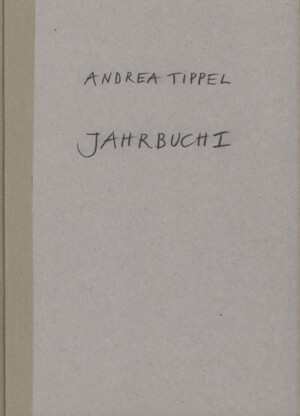 ANDREA TIPPEL
JAHRBUCH I